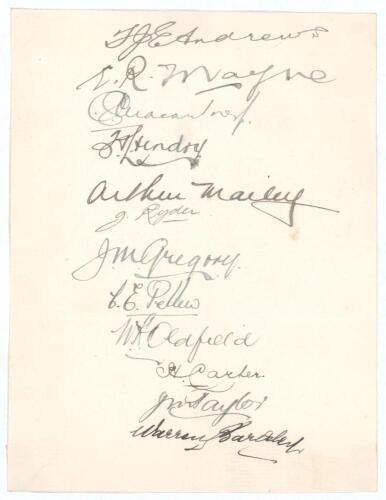 T J E Andrews
E. R. Mayne
C G Macartney.
H L Hendry
Arthur Mailey
J. Ryder
J M Gregory.
C. E. Pellew
W A Oldfield
H. Carter.
J M Taylor
Warren Bardsley